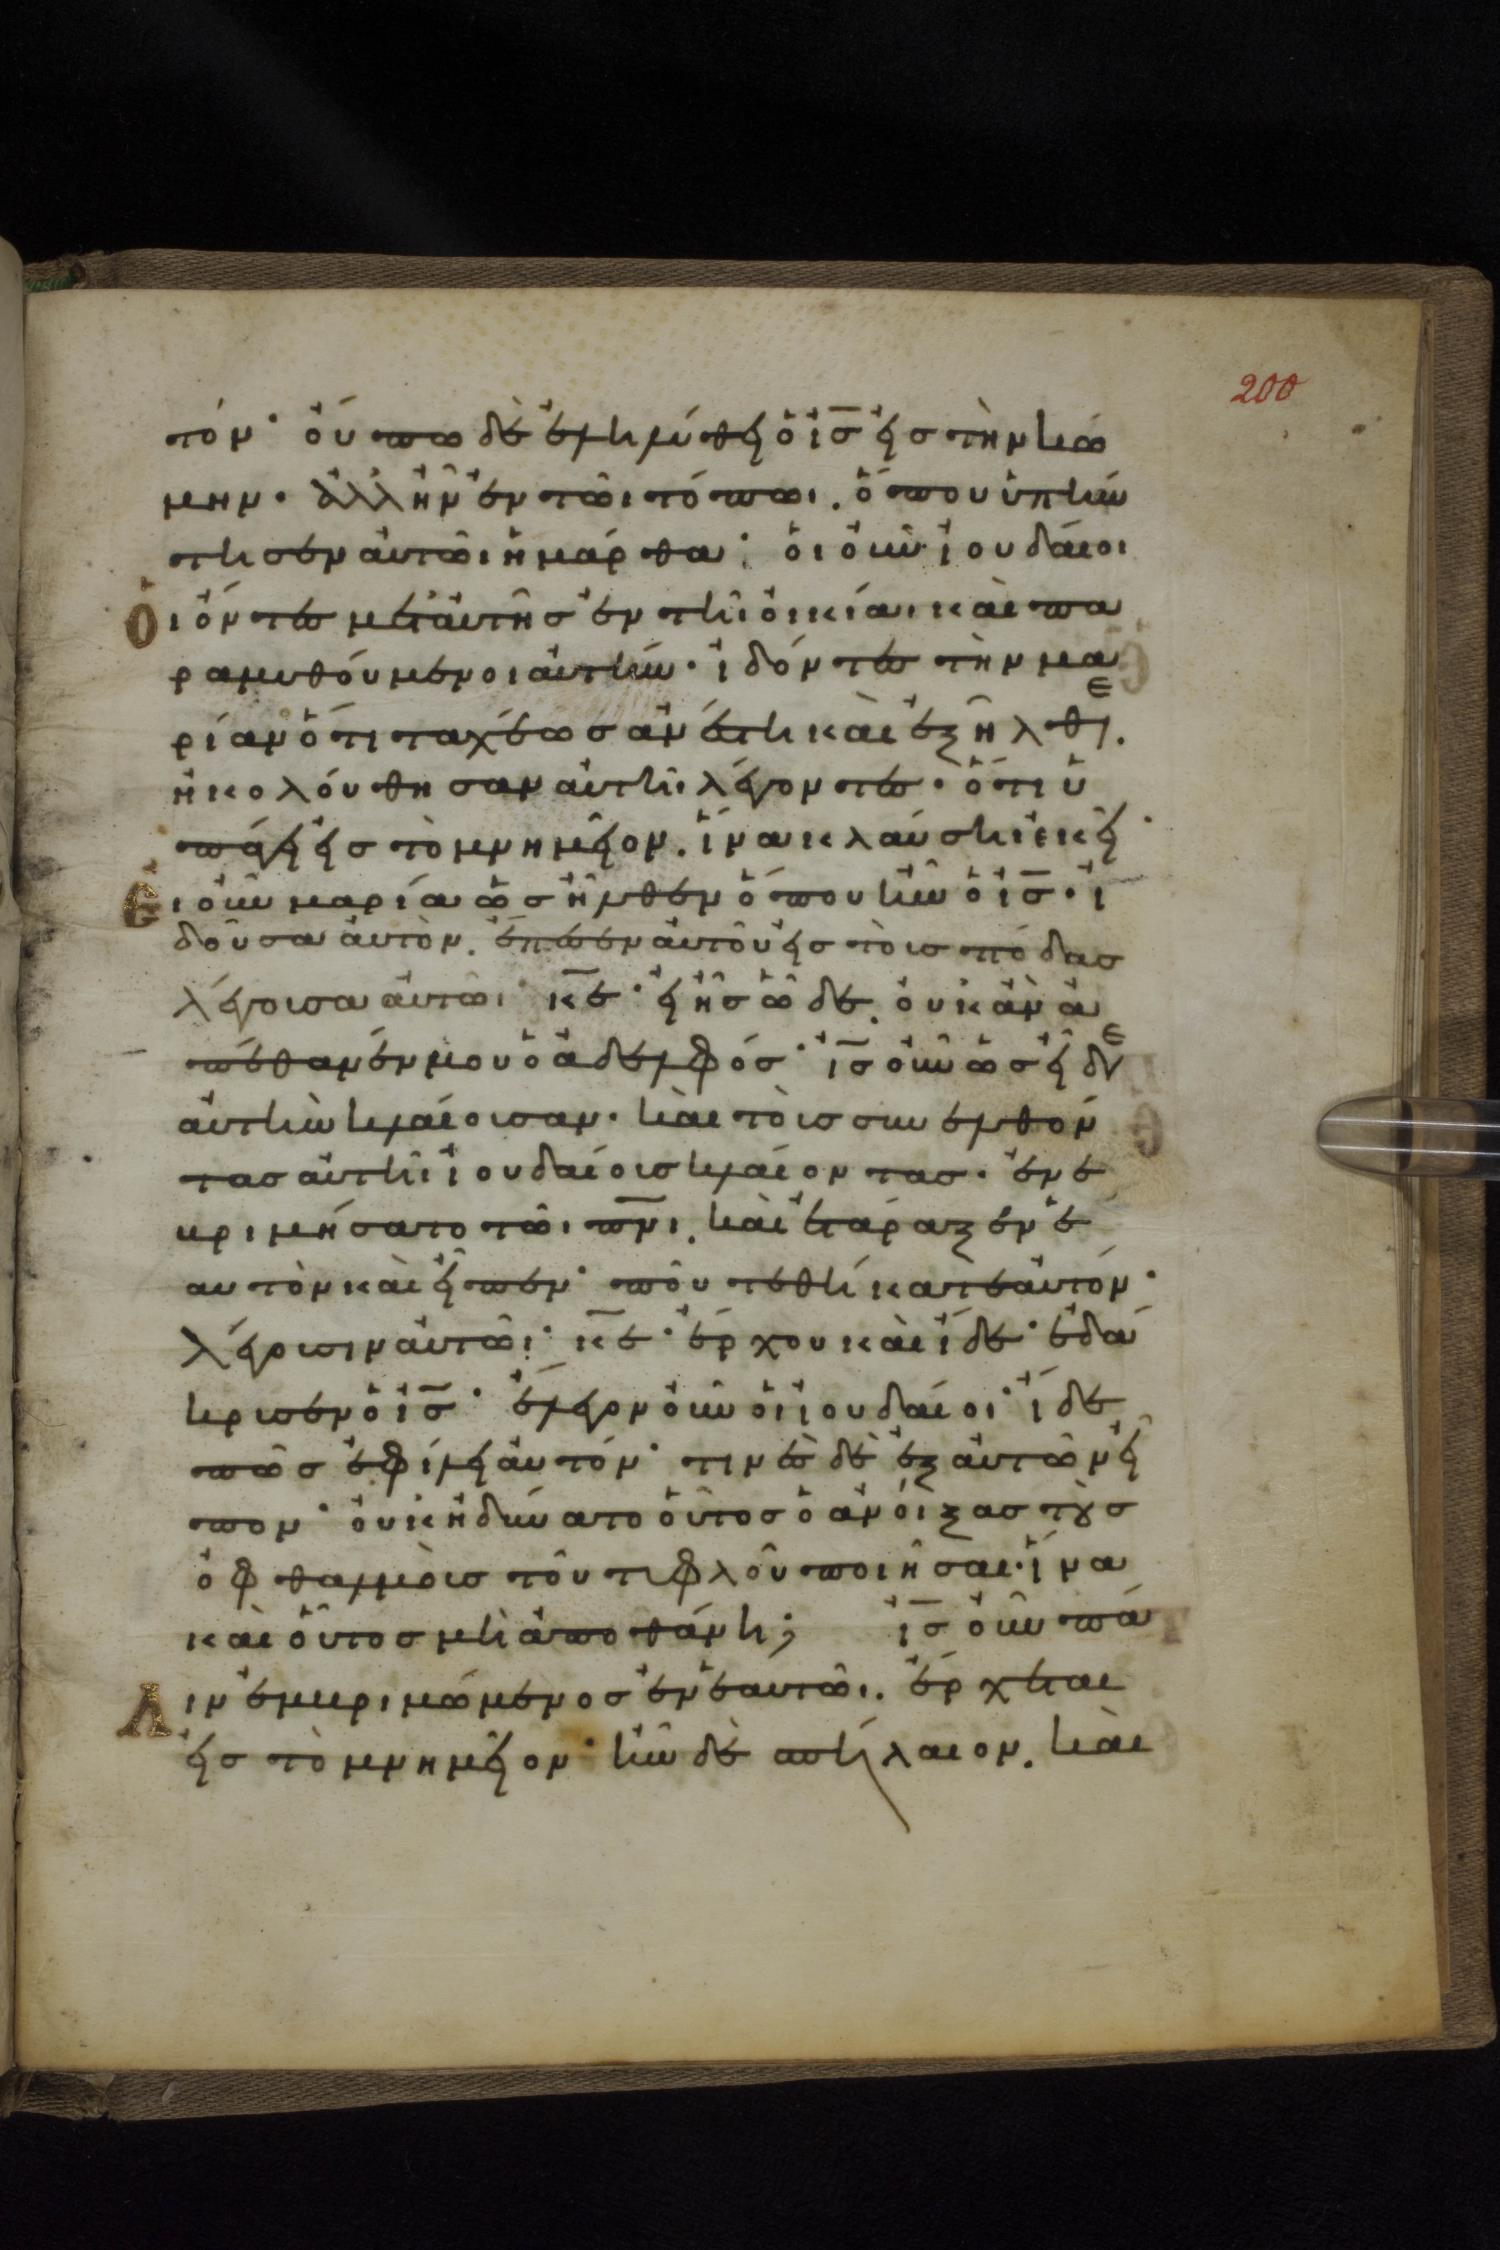 200
τόν· οὔπω δὲ ἐληλύθει ὁ ις̅ εἰς τὴν κώ
μην· ἀλλ' ἦν ἐν τῶι τόπωι. ὅπου ὑπήν
τησεν αὐτῶι ἡ μάρθα· ὁι οὖν ἰουδάιοι
ὁι ὄντες μετ' αὐτῆς ἐν τῆι ὀικίαι καὶ πα
ραμυθούμενοι αὐτήν· ἰδόντες τὴν μα
ρίαν ὅτι ταχέως ἀνέστη καὶ ἐξῆλθεν.
ἠκολούθησαν αὐτῆι λέγοντες· ὅτι ὑ
πάγει εἰς τὸ μνημεῖον. ἵνα κλαύσηι ἐκεῖ·
Ἑι οὖν μαρία ὡς ἦλθεν ὅπου ἦν ὁ ις̅· ἰ
δοῦσα ἀυτὸν. ἔπεσεν αὐτοῦ εἰς τοὺς πόδας
λέγουσα αὐτῶι· κε̅· εἰ ἦς ὧδε. οὐκ ἂν ἀ
πέθανέν μου ὁ ἀδελφός· ις̅ οὖν ὡς εἶδεν
ἀυτὴν κλαίουσαν· καὶ τοὺς συνελθόν
τας αὐτῆι ἰουδαίους κλαίοντας· ἐνε
βριμήσατο τῶι πνι̅. καὶ ἐτάραξεν ἑ
αυτὸν καὶ εἶπεν· ποῦ τεθήκατε αὐτόν·
λέγουσιν αὐτῶι· κε̅· ἔρχου καὶ ἴδε· ἐδά
κρυσεν ὁ ις̅· ἔλεγον οὖν ὁι ἰουδαίοι· ἴδε
πῶς ἐφίλει αὐτόν· τινὲς δὲ ἐξ αὐτῶν εἶ
πον· οὐκ ἠδύνατο οὗτος ὁ ἀνοίξας τοὺς
ὀφθαλμοὺς τοῦ τυφλοῦ ποιῆσαι· ἵνα
καὶ οὗτος μὴ ἀποθάνη; ις̅ οὖν πά
Λιν ἐμβριμώμενος ἐν ἑαυτῶι. ἔρχεται
εἰς τὸ μνημεῖον· ἦν δὲ σπήλαιον. καὶ